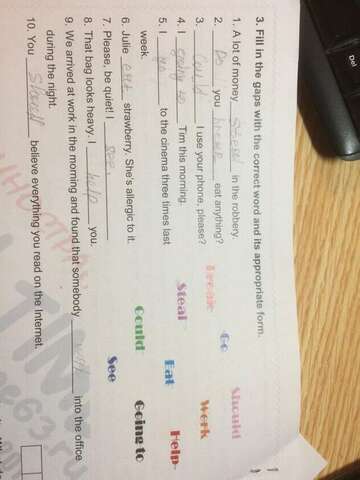 3. Fill in the gaps with the correct word and its appropriate form.
1. A lot of money in the robbery.
2. Do you eat anything?
3. Could I use your phone, please?
4. I Tim this morning.
5. I go to the cinema three times last
week.
6. Julie eat strawberry. She's allergic to it.
7. Please, be quiet! I see.
8. That bag looks heavy. I help you.
9. We arrived at work in the morning and found that somebody into the office
during the night.
10. You should believe everything you read on the Internet.
Break Go Should
Steal Eat Work
Could Going to Help
See
Del